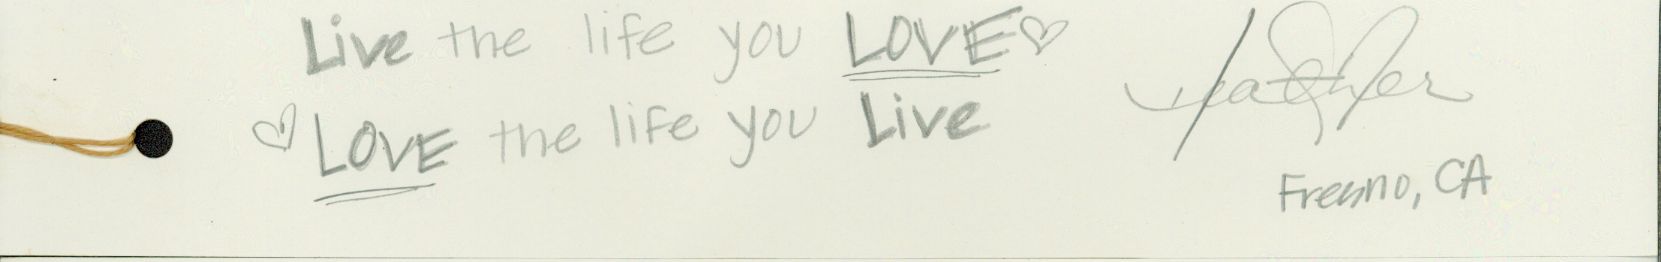 Live the life you LOVE♡
♡LOVE the life you Live
Heather
Fresno, CA